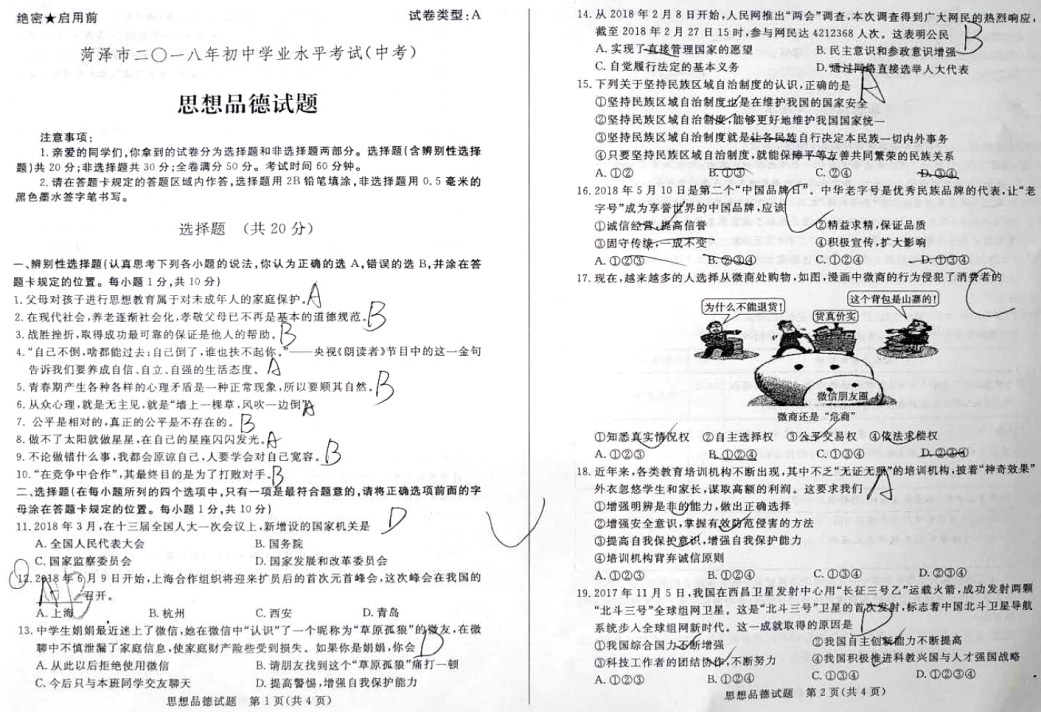 绝密★启用前
试卷类型:A
菏泽市二〇一八年初中学业水平考试(中考)
思想品德试题
注意事项:
1.亲爱的同学们,你拿到的试卷分为选择题和非选择题两部分。选择题(含辨别性选择
题)共20分;非选择题共30分;全卷满分50分。考试时间60分钟。
2.请在答题卡规定的答题区域内作答,选择题用2B铅笔填涂,非选择题用0.5毫米的
黑色墨水签字笔书写。
选择题 (共20分)
一、辨别性选择题(认真思考下列各小题的说法,你认为正确的选A,错误的选B,并涂在答
题卡规定的位置。每小题1分,共10分)
1.父母对孩子进行思想教育属于对未成年人的家庭保护。A
2.在现代社会,养老逐渐社会化,孝敬父母已不再是基本的道德规范。B
3.战胜挫折,取得成功最可靠的保证是他人的帮助。B
4.“自己不倒,啥都能过去;自己倒了,谁也扶不起你。”——央视《朗读者》节目中的这一金句
告诉我们要养成自信、自立、自强的生活态度。A
5.青春期产生各种各样的心理矛盾是一种正常现象,所以要顺其自然。B
6.从众心理,就是无主见,就是“墙上一棵草,风吹一边倒”。A
7.公平是相对的,真正的公平是不存在的。B
8.做不了太阳就做星星,在自己的星座闪闪发光。A
9.不论做错什么事,我都会原谅自己,人要学会对自己宽容。B
10.“在竞争中合作”,其最终目的是为了打败对手。B
二、选择题(在每小题所列的四个选项中,只有一项是最符合题意的,请将正确选项前面的字
母涂在答题卡规定的位置。每小题1分,共10分)
11.2018年3月,在十三届全国人大一次会议上,新增设的国家机关是 D
A.全国人民代表大会 B.国务院
C.国家监察委员会 D.国家发展和改革委员会
12.2018年6月9日开始,上海合作组织将迎来扩员后的首次元首峰会,这次峰会在我国的
召开。
A.上海 B.杭州 C.西安 D.青岛
13.中学生娟娟最近迷上了微信,她在微信中“认识”了一个昵称为“草原孤狼”的微友,在微
聊中不慎泄漏了家庭信息,使家庭财产险些受到损失。如果你是娟娟,你会 D
A.从此以后拒绝使用微信 B.请朋友找到这个“草原孤狼”痛打一顿
C.今后只与本班同学交友聊天 D.提高警惕,增强自我保护能力
思想品德试题 第1页(共4页)
14.从2018年2月8日开始,人民网推出“两会”调查,本次调查得到广大网民的热烈响应,
截至2018年2月27日15时,参与网民达4212368人次。这表明公民 B
A.实现了直接管理国家的愿望 B.民主意识和参政意识增强
C.自觉履行法定的基本义务 D.通过网络直接选举人大代表
15.下列关于坚持民族区域自治制度的认识,正确的是 A
①坚持民族区域自治制度也是在维护我国的国家安全
②坚持民族区域自治制度,能够更好地维护我国国家统一
③坚持民族区域自治制度就是让各民族自行决定本民族一切内外事务
④只要坚持民族区域自治制度,就能保障平等友善共同繁荣的民族关系
A.①② B.①③ C.②④ D.③④
16.2018年5月10日是第二个“中国品牌日”。中华老字号是优秀民族品牌的代表,让“老
字号”成为享誉世界的中国品牌,应该 C
①诚信经营,提高信誉 ②精益求精,保证品质
③固守传统,一成不变 ④积极宣传,扩大影响
A.①②③ B.②③④ C.①②④ D.①③④
17.现在,越来越多的人选择从微商处购物,如图,漫画中微商的行为侵犯了消费者的 C
为什么不能退货!
货真价实
这个背包是山寨的!
微信朋友圈
微商还是“危商”
①知悉真实情况权 ②自主选择权 ③公平交易权 ④依法求偿权
A.①②③ B.①②④ C.①③④ D.②③④
18.近年来,各类教育培训机构不断出现,其中不乏“无证无照”的培训机构,披着“神奇效果”
外衣忽悠学生和家长,谋取高额的利润。这要求我们 A
①增强明辨是非的能力,做出正确选择
②增强安全意识,掌握有效防范侵害的方法
③提高自我保护意识,增强自我保护能力
④培训机构背弃诚信原则
A.①②③ B.①②④ C.①③④ D.②③④
19.2017年11月5日,我国在西昌卫星发射中心用“长征三号乙”运载火箭,成功发射两颗
“北斗三号”全球组网卫星。这是“北斗三号”卫星的首次发射,标志着中国北斗卫星导航
系统步入全球组网新时代。这一成就取得的原因是 D
①我国综合国力不断增强 ②我国自主创新能力不断提高
③科技工作者的团结协作,不断努力 ④我国积极推进科教兴国与人才强国战略
A.①②③ B.①②④ C.①③④ D.①②③④
思想品德试题 第2页(共4页)